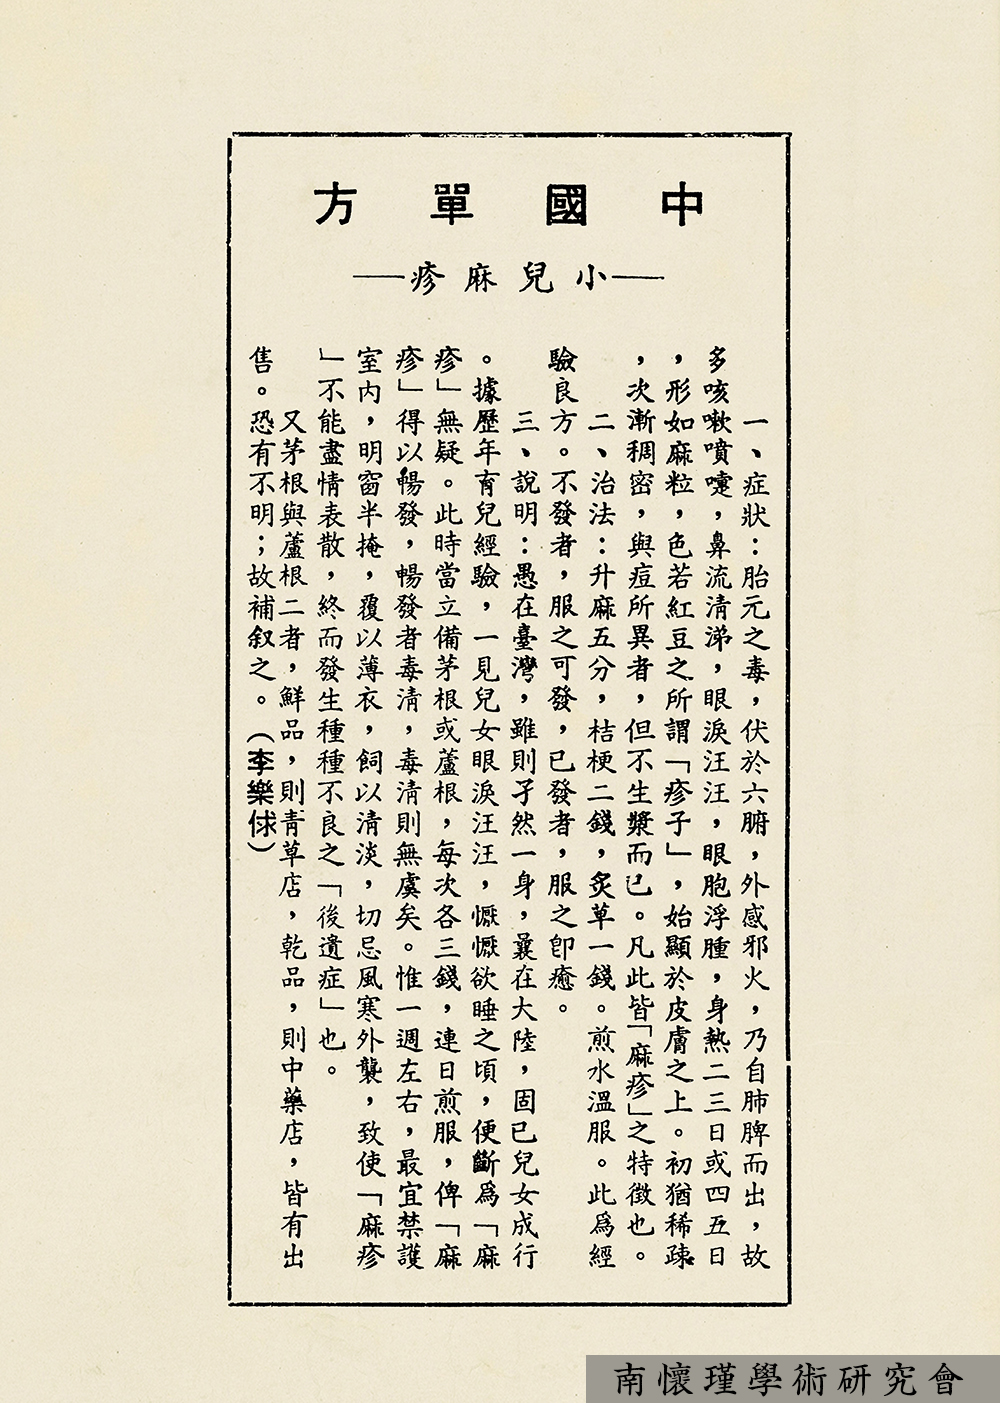 中國單方
──小兒麻疹──
一、症狀：胎元之毒，伏於六腑，外感邪火，乃自肺脾而出，故
多咳嗽噴嚏，鼻流清涕，眼淚汪汪，眼胞浮腫，身熱二三日或四五日
，形如麻粒，色若紅豆之所謂「疹子」，始顯於皮膚之上。初猶稀疎
，次漸稠密，與痘所異者，但不生漿而已。凡此皆「麻疹」之特徵也。
二、治法：升麻五分，桔梗二錢，炙草一錢。煎水溫服。此爲經
驗良方。不發者，服之可發，已發者，服之卽癒。
三、說明：愚在臺灣，雖則孑然一身，曩在大陸，固已兒女成行
。據歷年育兒經驗，一見兒女眼淚汪汪，懨懨欲睡之頃，便斷爲「麻
疹」無疑。此時當立備茅根或蘆根，每次各三錢，連日煎服，俾「麻
疹」得以暢發，暢發者毒清，毒清則無虞矣。惟一週左右，最宜禁護
室內，明窗半掩，覆以薄衣，飼以清淡，切忌風寒外襲，致使「麻疹
」不能盡情表散，終而發生種種不良之「後遺症」也。
又茅根與蘆根二者，鮮品，則青草店，乾品，則中藥店，皆有出
售。恐有不明；故補叙之。（李樂俅）
南懷瑾學術研究會